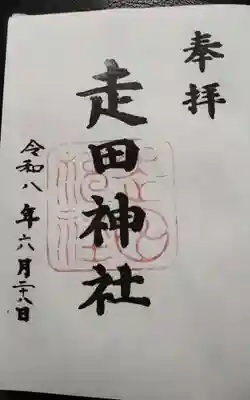 奉拝
走田神社
令和八年六月二十八日